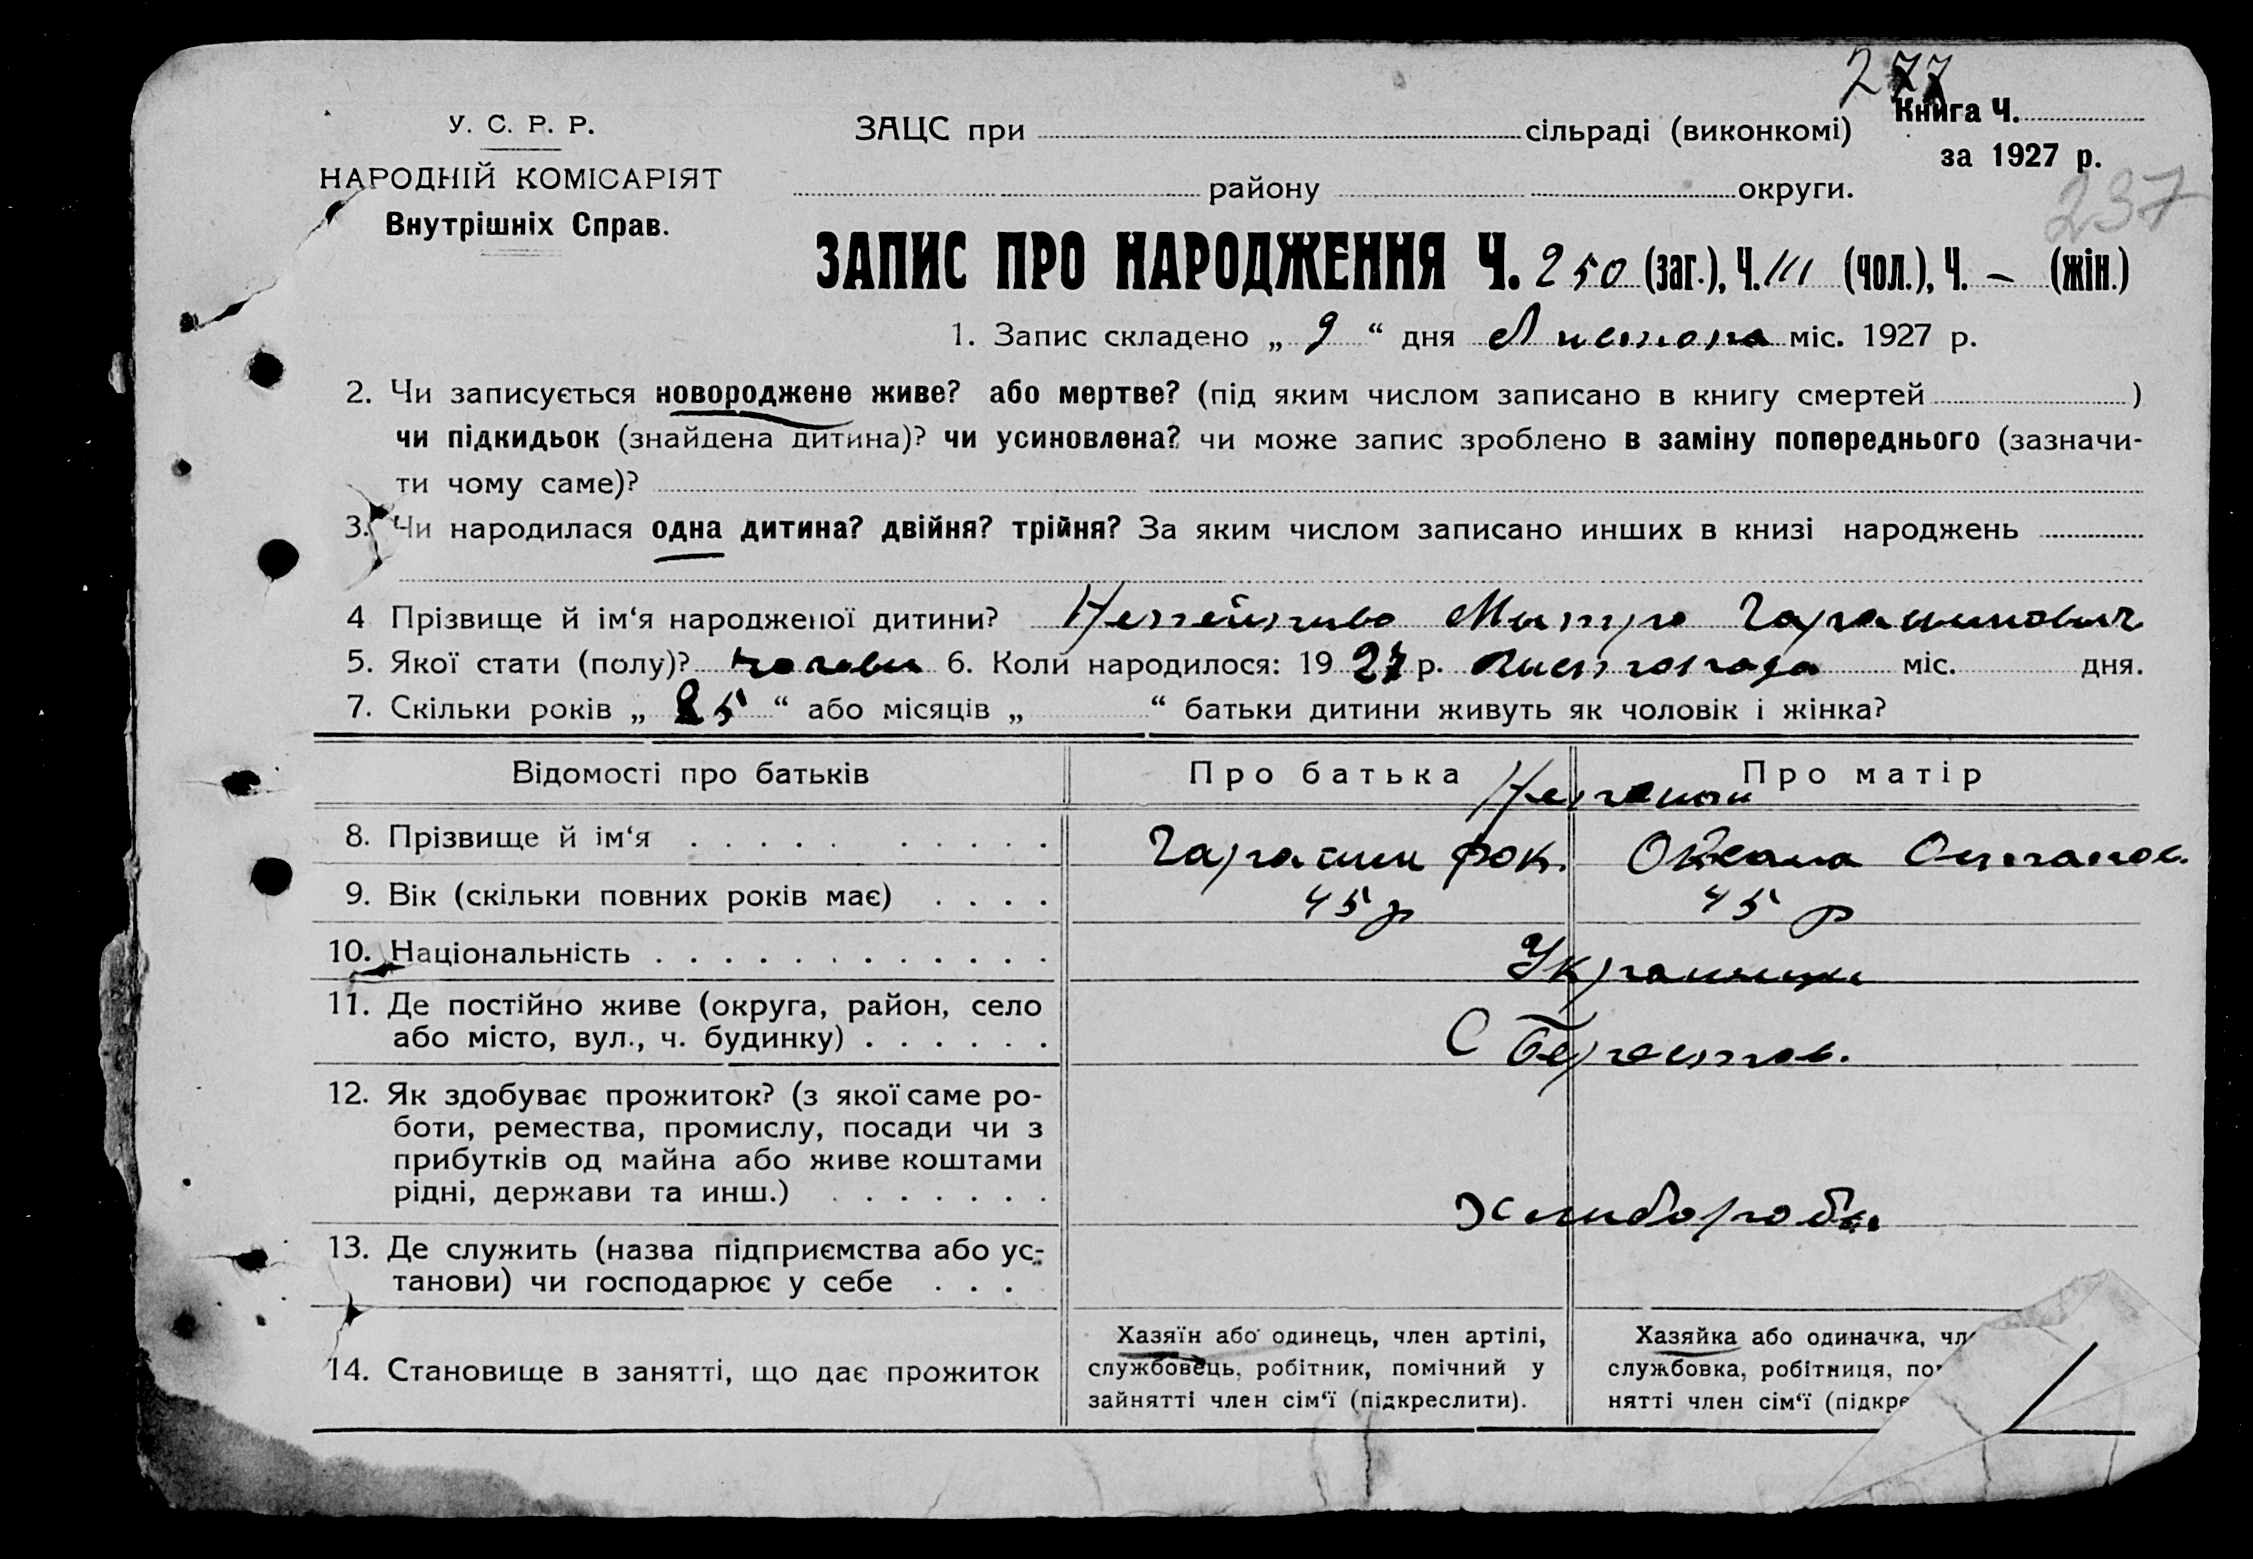 277
У. С. Р. Р.
ЗАЦС при сільраді (виконкомі)
Книга Ч.
НАРОДНІЙ КОМІСАРІЯТ
за 1927 р.
району округи.
237
Внутрішніх Справ.
ЗАПИС ПРО НАРОДЖЕННЯ Ч. 250 (заг.), Ч. 111 (чол.), Ч. – (жін.)
1. Запис складено „ 9 “ дня Листопа міс. 1927 р.
2. Чи записується новороджене живе? або мертве? (під яким числом записано в книгу смертей )
чи підкидьок (знайдена дитина)? чи усиновлена? чи може запис зроблено в заміну попереднього (зазначи-
ти чому саме)?
3. Чи народилася одна дитина? двійня? трійня? За яким числом записано инших в книзі народжень
4 Прізвище й ім‘я народженої дитини? Митро
5. Якої стати (полу)? 6. Коли народилося: 1927 р. Листопада міс. дня.
7. Скільки років „ 25 “ або місяців „ “ батьки дитини живуть як чоловік і жінка?
Відомості про батьків
Про батька
Про матір
8. Прізвище й ім‘я . . . . . . . . . . .
Гарасим Фок. Оксана
9. Вік (скільки повних років має) . . . .
45 р 45 р
10. Національність . . . . . . . . . . . .
Украинци
11. Де постійно живе (округа, район, село
або місто, вул., ч. будинку) . . . . . .
С Берестов.
12. Як здобуває прожиток? (з якої саме ро-
боти, ремества, промислу, посади чи з
прибутків од майна або живе коштами
рідні, держави та инш.) . . . . . . .
Хлибороби
13. Де служить (назва підприємства або ус-
танови) чи господарює у себе . . .
14. Становище в занятті, що дає прожиток
Хазяїн або одинець, член артілі,
службовець, робітник, помічний у
зайнятті член сім‘ї (підкреслити).
Хазяйка або одиначка, чл
службовка, робітниця, по
нятті член сім‘ї (підкре